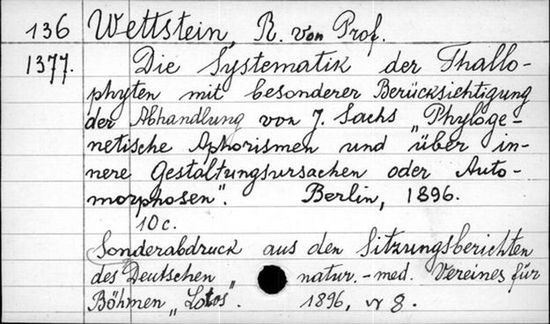 136 Wettstein, R. von Prof.
1377. Die Systematik der Thallo-
phyten mit besonderer Berücksichtigung
der Abhandlung von J. Sachs „Phyloge-
netische Aphorismen und über in-
nere Gestaltungsursachen oder Auto-
morphosen". Berlin, 1896.
10 c.
Sonderabdruck aus den Sitzungsberichten
des Deutschen natur.-med. Vereines für
Böhmen „Lotos". 1896, № 8.